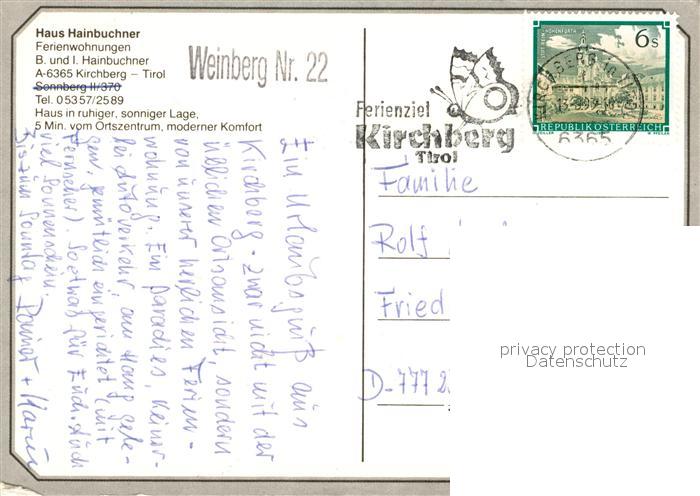 Haus Hainbuchner
Ferienwohnungen
B. und I. Hainbuchner
A-6365 Kirchberg – Tirol
Sonnberg II/370
Tel. 05357/2589
Haus in ruhiger, sonniger Lage,
5 Min. vom Ortszentrum, moderner Komfort
Weinberg Nr. 22
Ferienziel
Kirchberg
Tirol
6s
REPUBLIK ÖSTERREICH
6365
Ein Urlaubsgruß aus
Kirchberg - zwar nicht mit der
üblichen Ortsansicht, sondern
von unserer herrlichen Ferien-
wohnung. Ein Paradies, keiner-
lei Autoverkehr, am Hang gele-
gen, gemütlich eingerichtet (mit
Fernseher). Soetwas für Euch. Auch
viel Sonnenschein.
Bis zum Sonntag
Familie
Rolf
Fried
D-777
privacy protection
Datenschutz